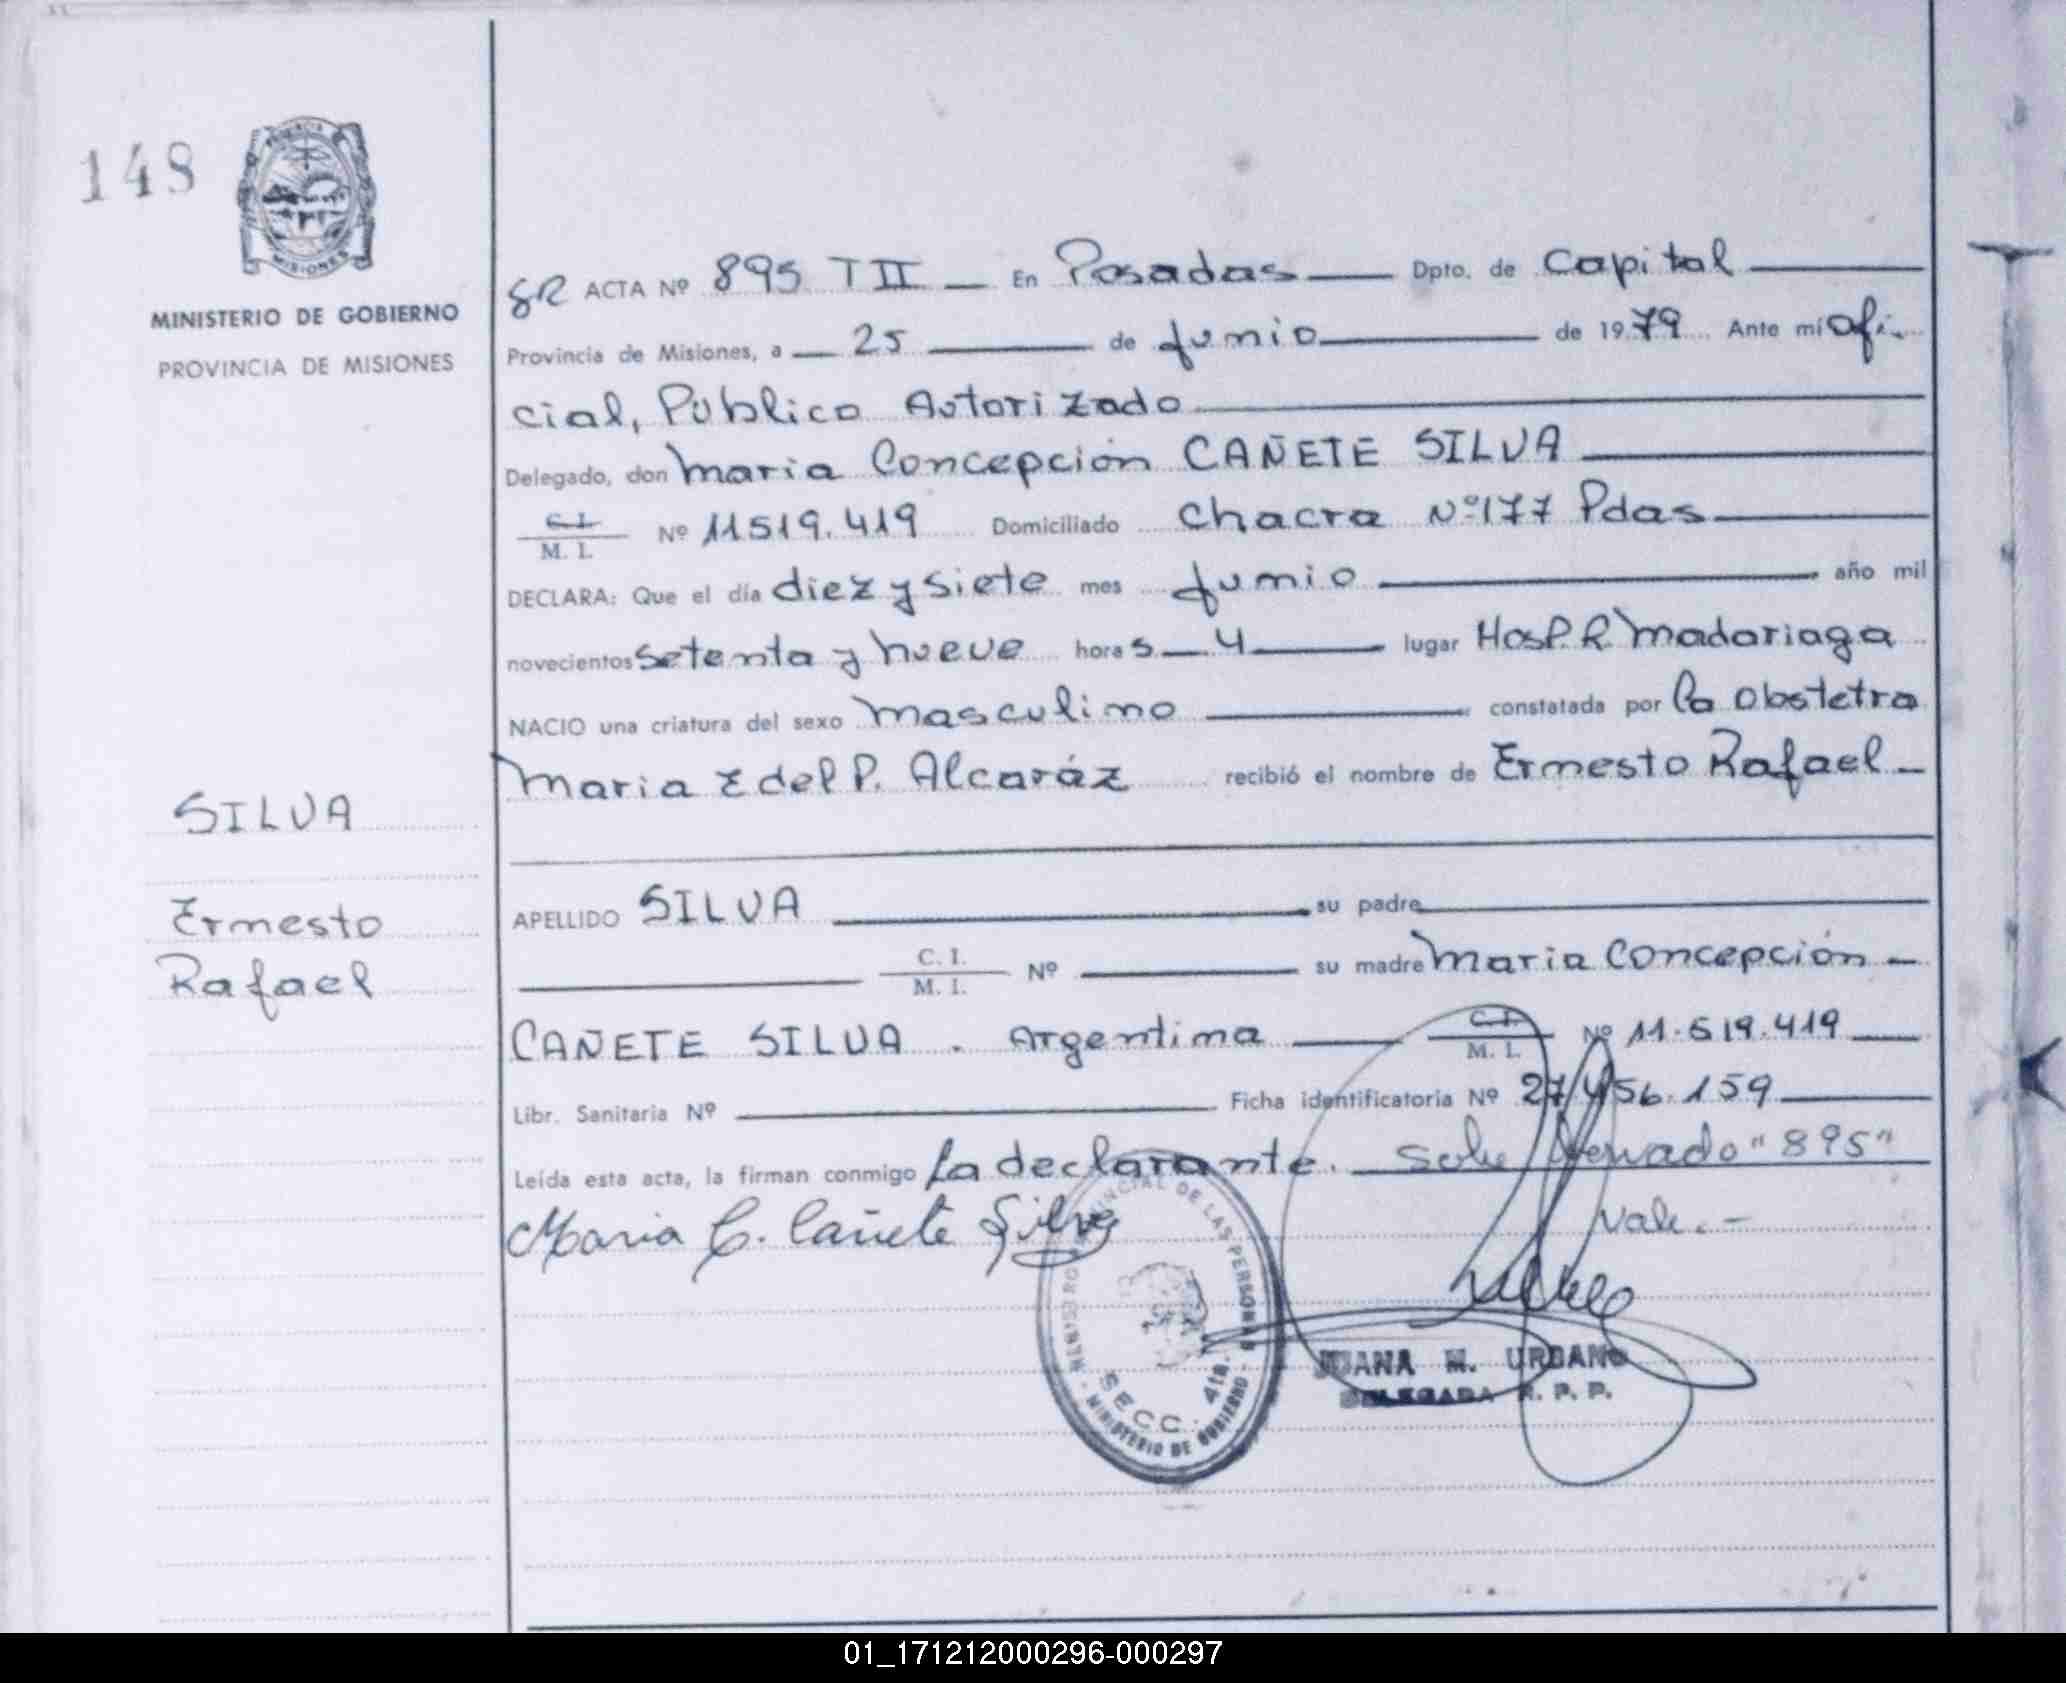 148
MINISTERIO DE GOBIERNO
PROVINCIA DE MISIONES
SILVA
Ernesto
Rafael
SR ACTA Nº 895 T II — En Posadas — Dpto. de Capital —
Provincia de Misiones, a — 25 — de Junio — de 19 79 Ante mí ofi-
cial, Público Autorizado —
Delegado, don Maria Concepción CAÑETE SILVA —
C. I. / M. I. Nº 11519.419 Domiciliado Chacra Nº 177 Pdas —
DECLARA: Que el día diez y siete mes Junio — año mil
novecientos setenta y nueve hora s — 4 — lugar Hosp. R. Madariaga
NACIO una criatura del sexo masculino — constatada por la obstetra
Maria Edel P. Alcaráz recibió el nombre de Ernesto Rafael —
APELLIDO SILVA — su padre —
— C. I. / M. I. Nº — su madre Maria Concepción —
CAÑETE SILVA . Argentina — C. I. / M. I. Nº 11.519.419 —
Libr. Sanitaria Nº — Ficha identificatoria Nº 27.456.159 —
Leída esta acta, la firman conmigo La declarante. Sobre "895"
Vale. -
Maria C. Cañete Silva
PROVINCIAL DE LAS PERSONAS
SECC. 4ta.
MINISTERIO DE GOBIERNO
JUANA M. URBANO
DELEGADA R. P. P.
01_171212000296-000297